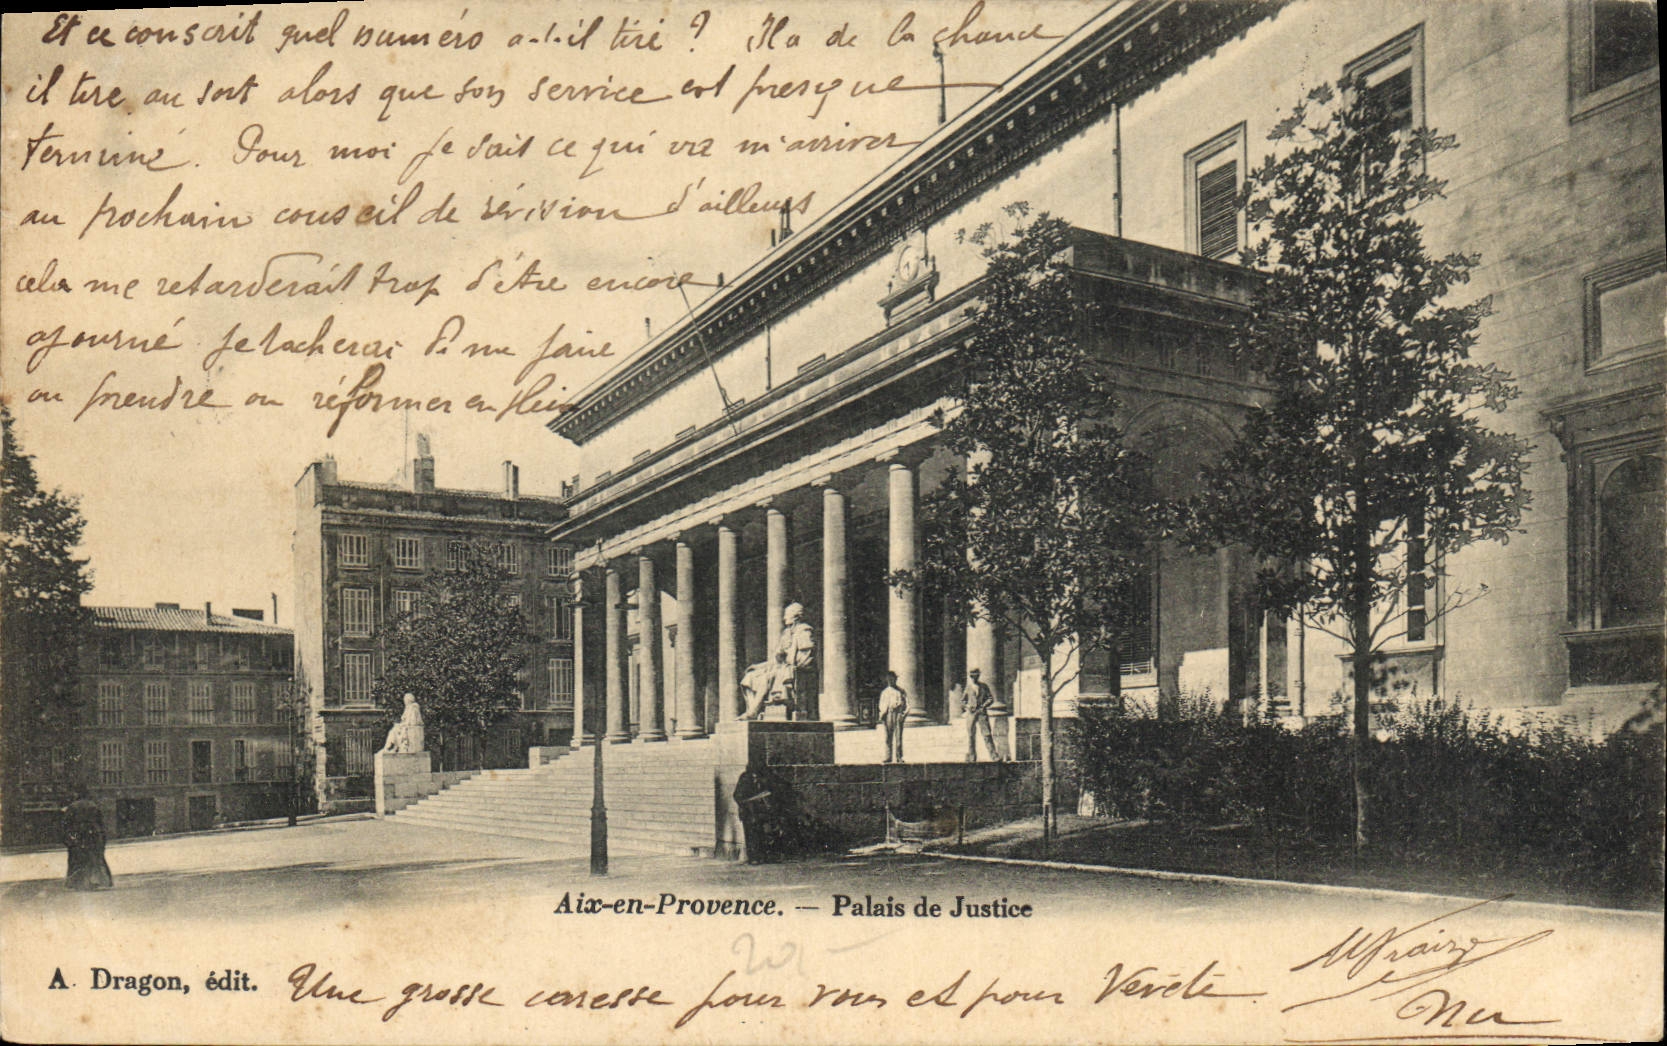 Et ce conscrit quel numéro a-t-il tiré ? Il a de la chance
il tire au sort alors que son service est presque
terminé. Pour moi je sait ce qui va m'arriver
au prochain conseil de révision d'ailleurs
cela me retarderait trop d'être encore
ajourné je tacherai de me faire
ou prendre ou réformer en plein
Aix-en-Provence. — Palais de Justice
A. Dragon, édit.
Une grosse caresse pour vous et pour Vévété.